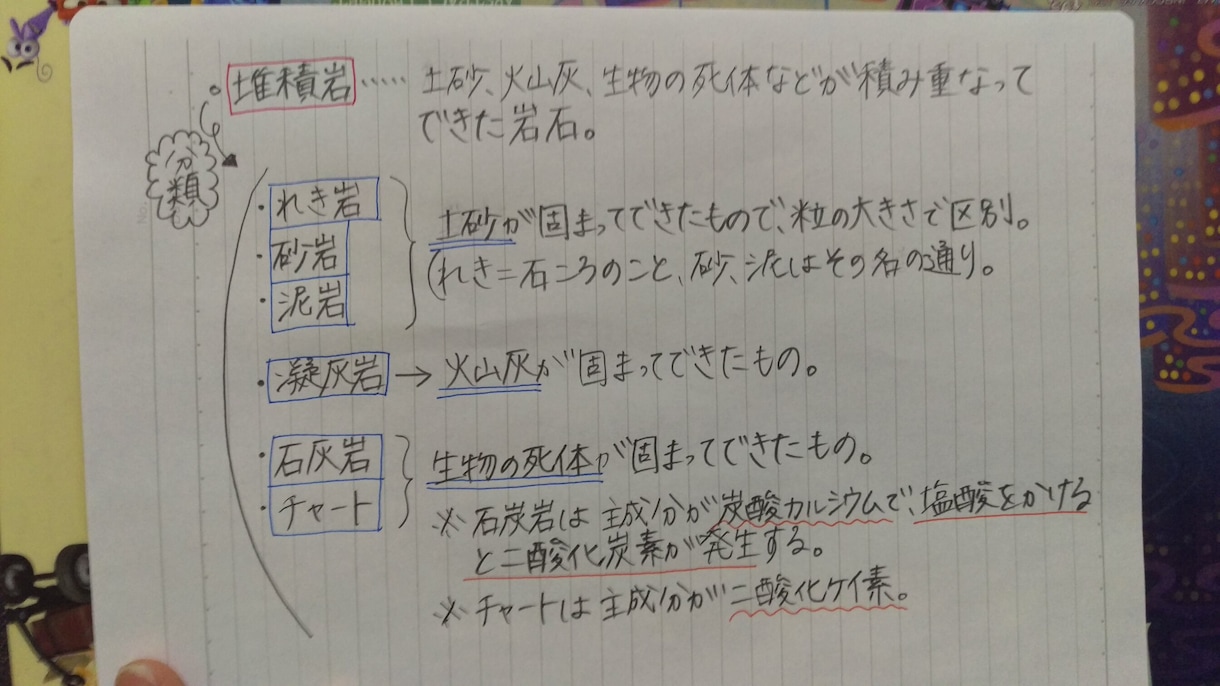 堆積岩…… 土砂、火山灰、生物の死体などが積み重なって
できた岩石。
分類
・れき岩
・砂岩
・泥岩
土砂が固まってできたもので、粒の大きさで区別。
(れき=石ころのこと、砂、泥はその名の通り。
・凝灰岩→火山灰が固まってできたもの。
・石灰岩
・チャート
生物の死体が固まってできたもの。
※石炭岩は主成分が炭酸カルシウムで、塩酸をかける
と二酸化炭素が発生する。
※チャートは主成分が二酸化ケイ素。